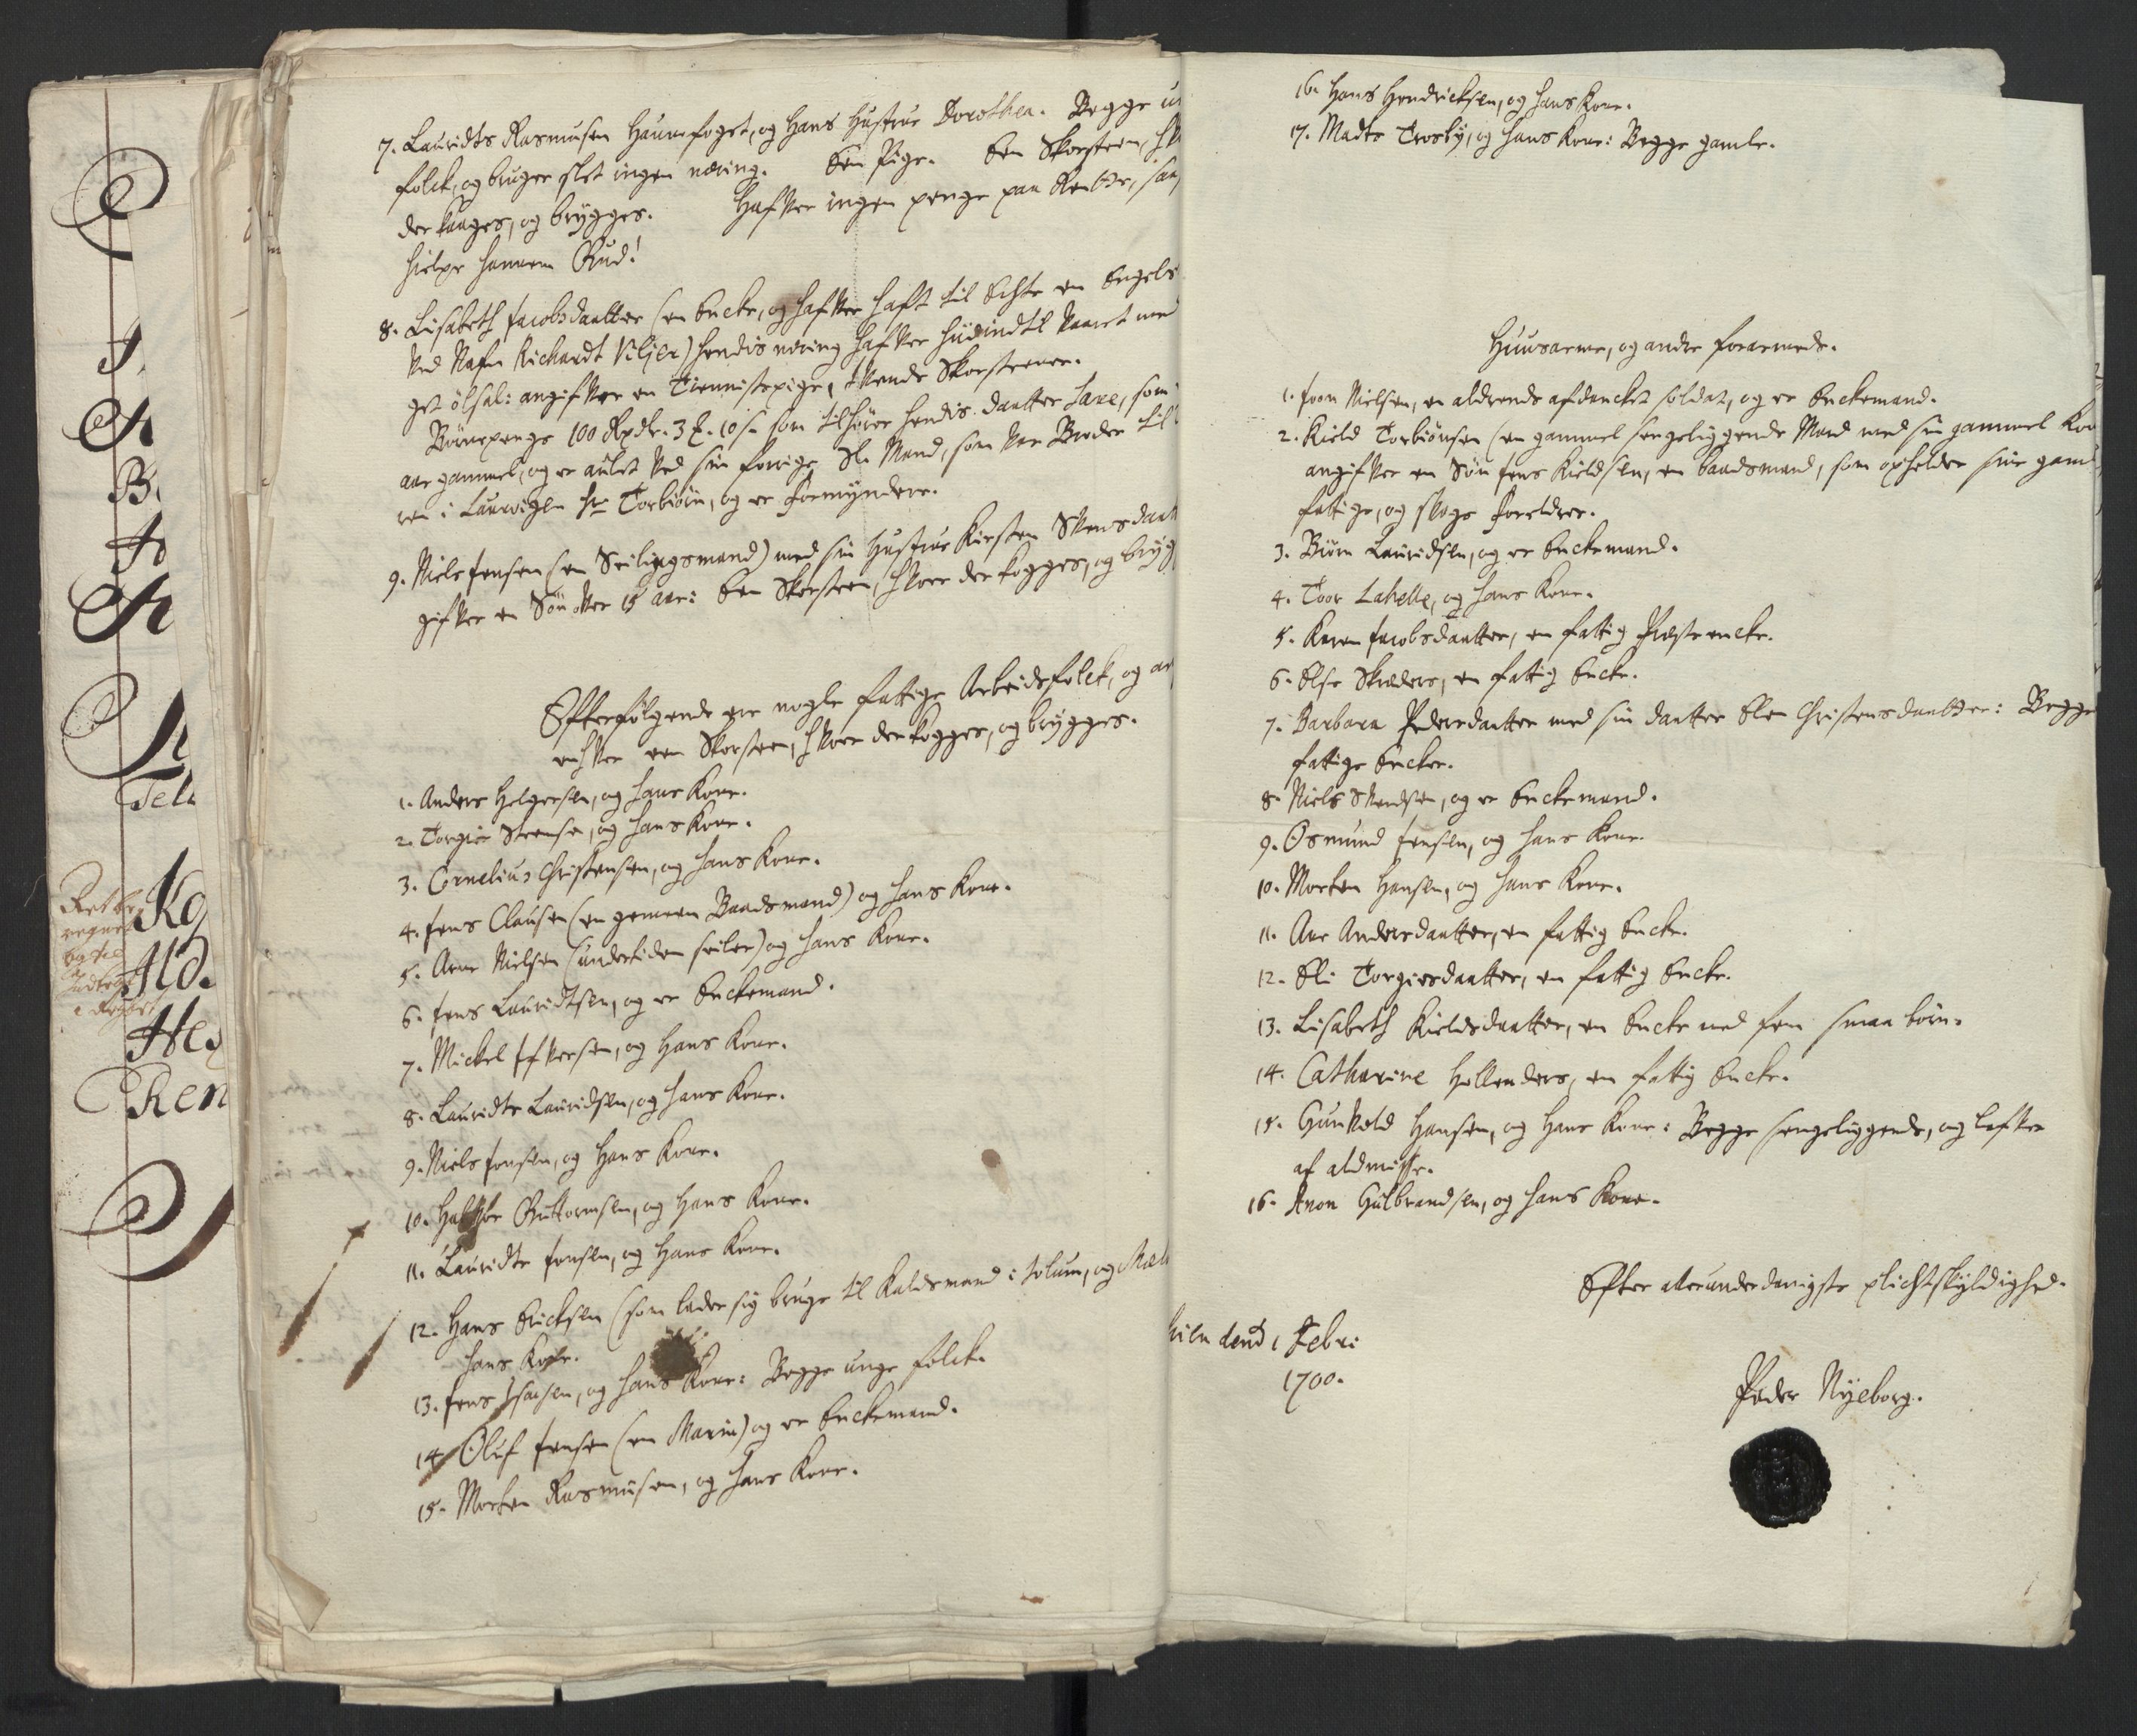 7. Lauridts Rasmusen Haunefoget, og Hans Hustrue Dorothea. Begge
folck, og bruger slet ingen næring. Een Pige. Een Skorsteen,
der kaages, og brygges. Hafver ingen penge paa Rentte,
hielpe hannem Gud!
8. Lisabeth Jacobsdaatter (en Encke, og hafver haft til Echte en Engels
ved Nafn Richardt Viljer) hendis næring hafver hiidindtil værret med
get ölsal: angifver en Tienniste pige, tvende Skorsteene.
Börnepenge 100 Rdr. 3 . 10 s. som tilhörer hendis daatter Lare, som
aar gammel, og er aulet ved sin forrige Sl. Mand, som var Broder til
ren i Laurvigen Hr Torbiörn, og er Formyndere.
9. Niels Jensen (en Seilingsmand) med sin Hustrue Kirsten Svensdaat
gifver en Sön ofver 15 aar: Een Skorsteen, hvor der kogges, og bryg
Efterfölgende ere nogle fattige Arbeidsfolck, og
enhver een Skorsteen, hvor der kogges, og brygges.
1. Anders Helgersen, og hans Kone.
2. Torgier Steensen, og hans Kone.
3. Cornelius Christensen, og hans Kone.
4. Jens Clausen (en gemeen Baadsmand) og hans Kone.
5. Arne Nielsen (undertiden seiler) og hans Kone.
6. Jens Lauridtsen, og er Enckemand.
7. Mickel Ifversen, og Hans Kone.
8. Lauridts Lauridsen, og hans Kone.
9. Niels Jonsen, og Hans Kone.
10. Guttormsen, og Hans Kone.
11. Lauridts Jonsen, og Hans Kone.
12. Hans Ericksen (som lader sig bruge til Kaldsmand i Solum, og
hans Kone.
13. Jens Isacsen, og hans Kone: Begge unge folck.
14 Oluf Jensen (en Marin) og er Enckemand.
15. Morten Rasmusen, og hans Kone.
16. Hans Hendricksen, og hans Kone.
17. Madts Trosby, og hans Kone: Begge gamle.
Huusarme, og andre forarmede.
1. Joen Nielsen, en aldrends afdancket soldat, og er Enckemand.
2. Kield Torbiönsen (en gammel sengeliggende Mand med sin gammel
angifver en Sön Jens Kieldsen, en baadsmand, som opholder sine
fattige, og svage Foreldrer.
3. Biörn Lauridsen, og er Enckemand.
4. Toor Lahelle, og hans Kone.
5. Karen Jacobsdaatter, en fattig Præste encke.
6. Else Skreders, en fattig Encke.
7. Barbara Pedersdaatter med sin daatter Elen Christensdaatter: Begge
fattige Encker.
8. Niels Svendsen, og er Enckemand.
9. Osmund Jensen, og hans Kone.
10. Morten Hansen, og hans Kone.
11. Ane Andersdaatter, en fattig Encke.
12. Eli Torgiersdaatter, en fattig Encke.
13. Lisabeth Kieldsdaatter, en Encke med fem smaa börn.
14. Catharine Hollenders, en fattig Encke.
15. Gunvold Hansen, og Hans Kone: Begge sengeliggende, og lefver
af aldmisse.
16. Anon Gulbrandsen, og hans Kone.
Efter allerunderdanigste plichtskyldighed.
dend 1 Febr:
1700.
Peder Nyeborg.